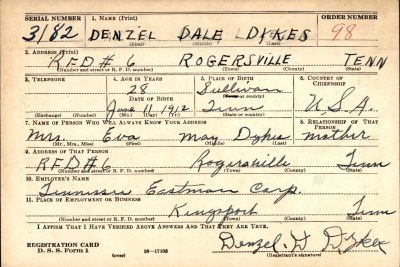 SERIAL NUMBER 1. NAME (Print) ORDER NUMBER
3182 DENZEL DALE DYKES 98
(First) (Middle) (Last)
2. ADDRESS (Print)
RFD# 6 ROGERSVILLE TENN
(Number and street or R. F. D. number) (Town) (County) (State)
3. TELEPHONE 4. AGE IN YEARS 5. PLACE OF BIRTH 6. COUNTRY OF CITIZENSHIP
28 Sullivan
DATE OF BIRTH (Town or county)
June 11 1912 Tenn U.S.A.
(Exchange) (No.) (Mo.) (Day) (Yr.) (State or country)
7. NAME OF PERSON WHO WILL ALWAYS KNOW YOUR ADDRESS 8. RELATIONSHIP OF THAT PERSON
Mrs. Eva May Dykes mother
(Mr., Mrs., Miss) (First) (Middle) (Last)
9. ADDRESS OF THAT PERSON
RFD#6 Rogersville Tenn
(Number and street or R. F. D. number) (Town) (County) (State)
10. EMPLOYER'S NAME
Tennessee Eastman Corp.
11. PLACE OF EMPLOYMENT OR BUSINESS
Kingsport Tenn
(Number and street or R. F. D. number) (Town) (County) (State)
I AFFIRM THAT I HAVE VERIFIED ABOVE ANSWERS AND THAT THEY ARE TRUE.
REGISTRATION CARD Denzel D Dykes
D. S. S. Form 1 (over) 16-17105 (Registrant's signature)